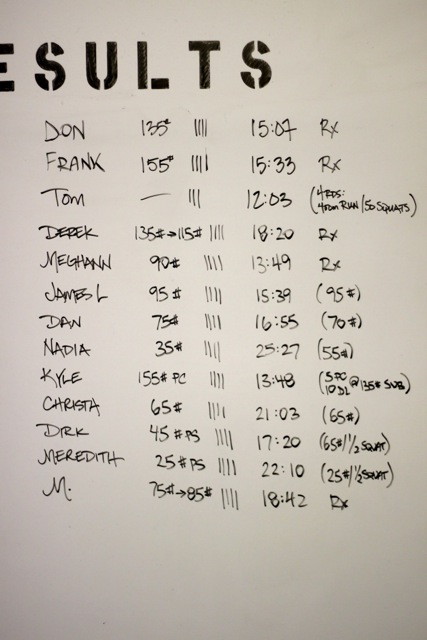 ESULTS
DON 135# |||| 15:07 Rx
FRANK 155# |||| 15:33 Rx
Tom — ||| 12:03 (4 RDS: 400m RUN/50 SQUATS)
DEREK 135#→115# |||| 18:20 Rx
MEGHANN 90# |||| 13:49 Rx
JAMES L 95# |||| 15:39 (95#)
DAN 75# |||| 16:55 (70#)
NADIA 35# |||| 25:27 (55#)
KYLE 155# PC |||| 13:48 (5 PC 10 DL @ 135# SUB)
CHRISTA 65# |||| 21:03 (65#)
DIRK 45# PS |||| 17:20 (65#/1/2 SQUAT)
MEREDITH 25# PS |||| 22:10 (25#/1/2 SQUAT)
M. 75#→85# |||| 18:42 Rx